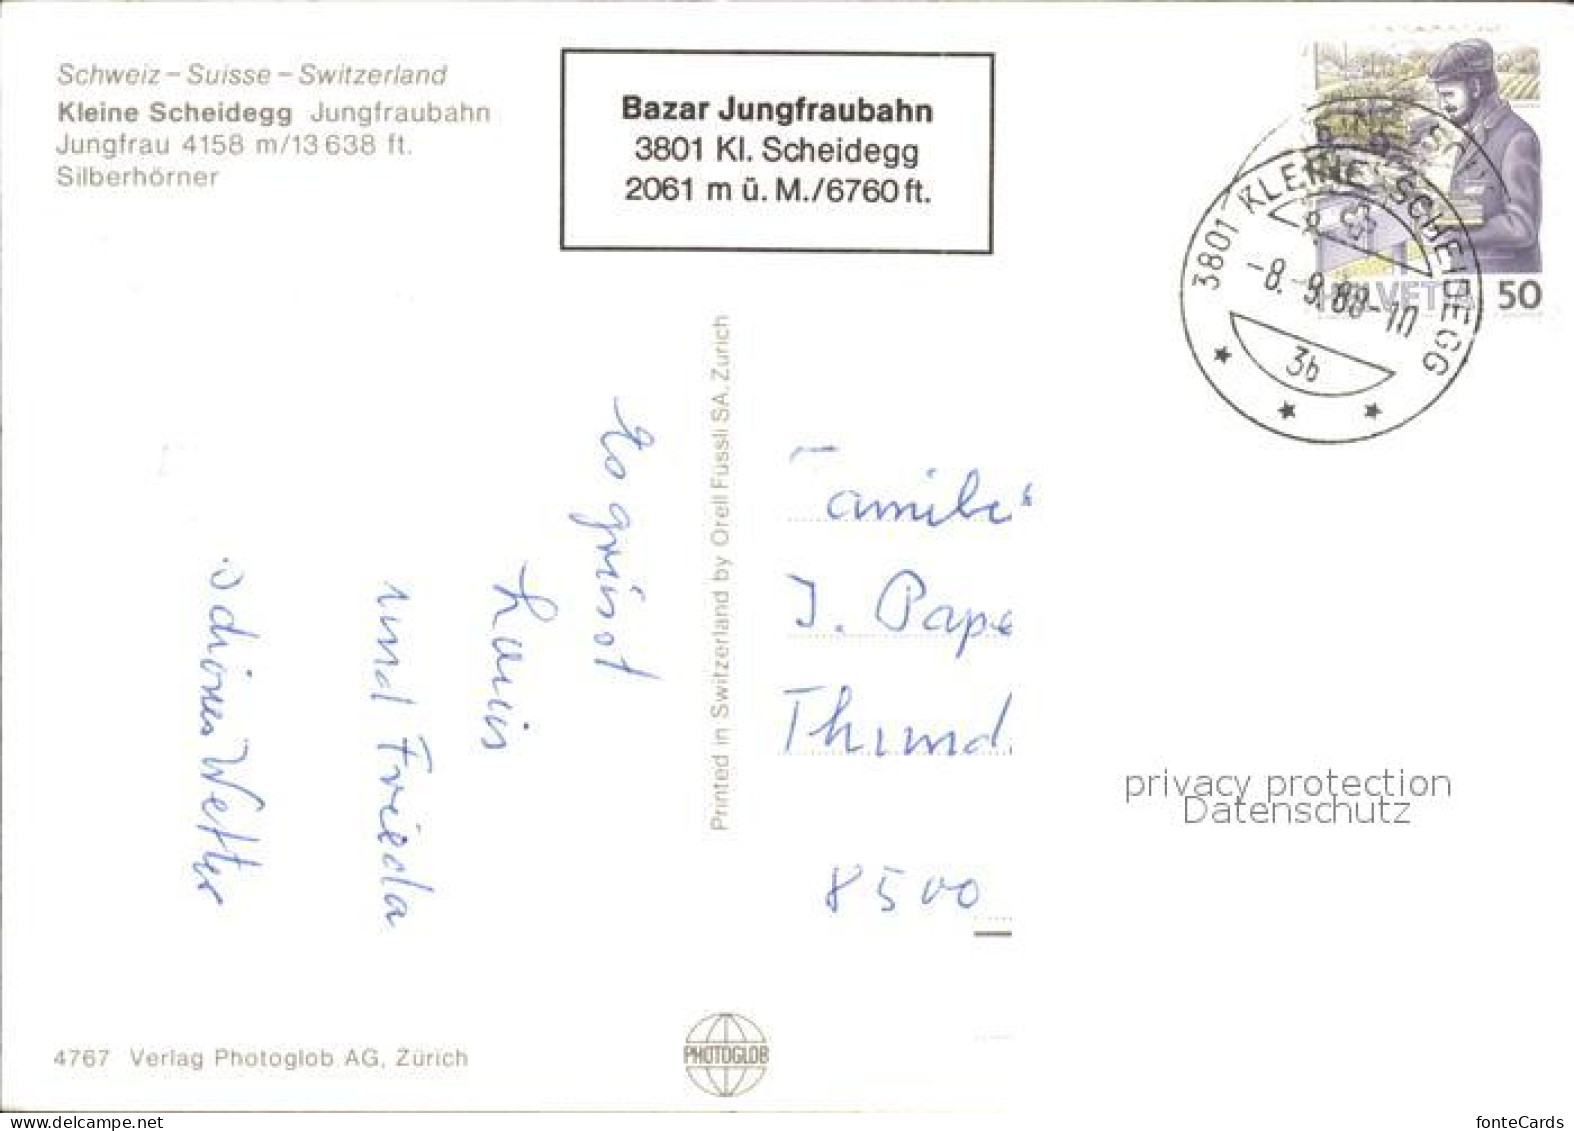 Schweiz – Suisse – Switzerland
Kleine Scheidegg Jungfraubahn
Jungfrau 4158 m/13 638 ft.
Silberhörner
Bazar Jungfraubahn
3801 Kl. Scheidegg
2061 m ü. M./6760 ft.
HELVETIA 50
3801 KLEINE SCHEIDEGG
-8.-9.88-10
3b
Es grüsst
Louis
und Frieda
schönes Wetter
Printed in Switzerland by Orell Füssli SA, Zürich
Familie
J. Pape
Thund
8500
privacy protection
Datenschutz
4767 Verlag Photoglob AG, Zürich
PHOTOGLOB
fonteCards